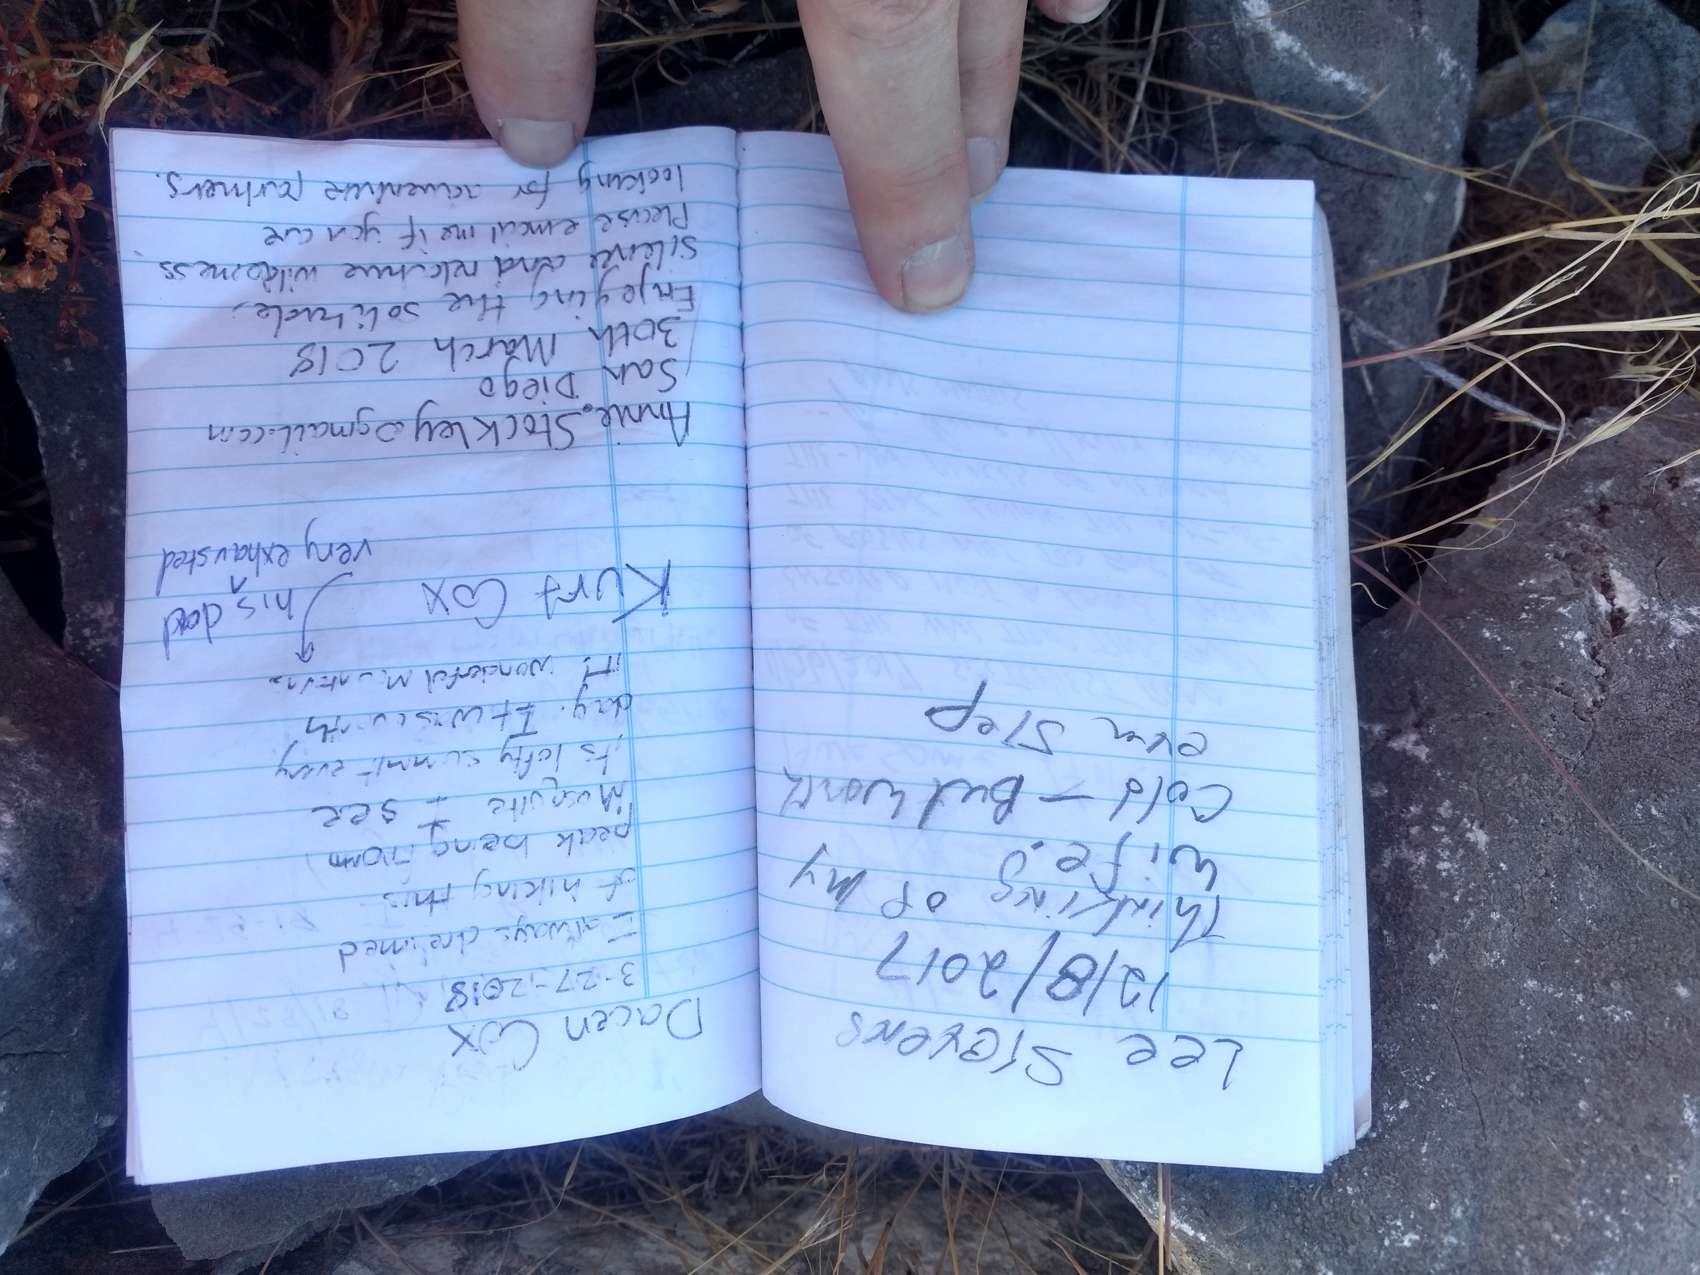 Lee Stevens
12/8/2017
Thinking of my
wife.
Cold - But worth
step
Dacen Cox
3-27-2018
I always dreamed
of hiking this
peak being from
Mesquite I see
its lofty summit every
day. It was worth
it! wonderful
Kurt Cox his dad
very exhausted
Annie.Stockley@gmail.com
San Diego
30th March 2018
Enjoying the solitude,
silence and relative wilderness.
Please email me if you are
looking for adventure partners.